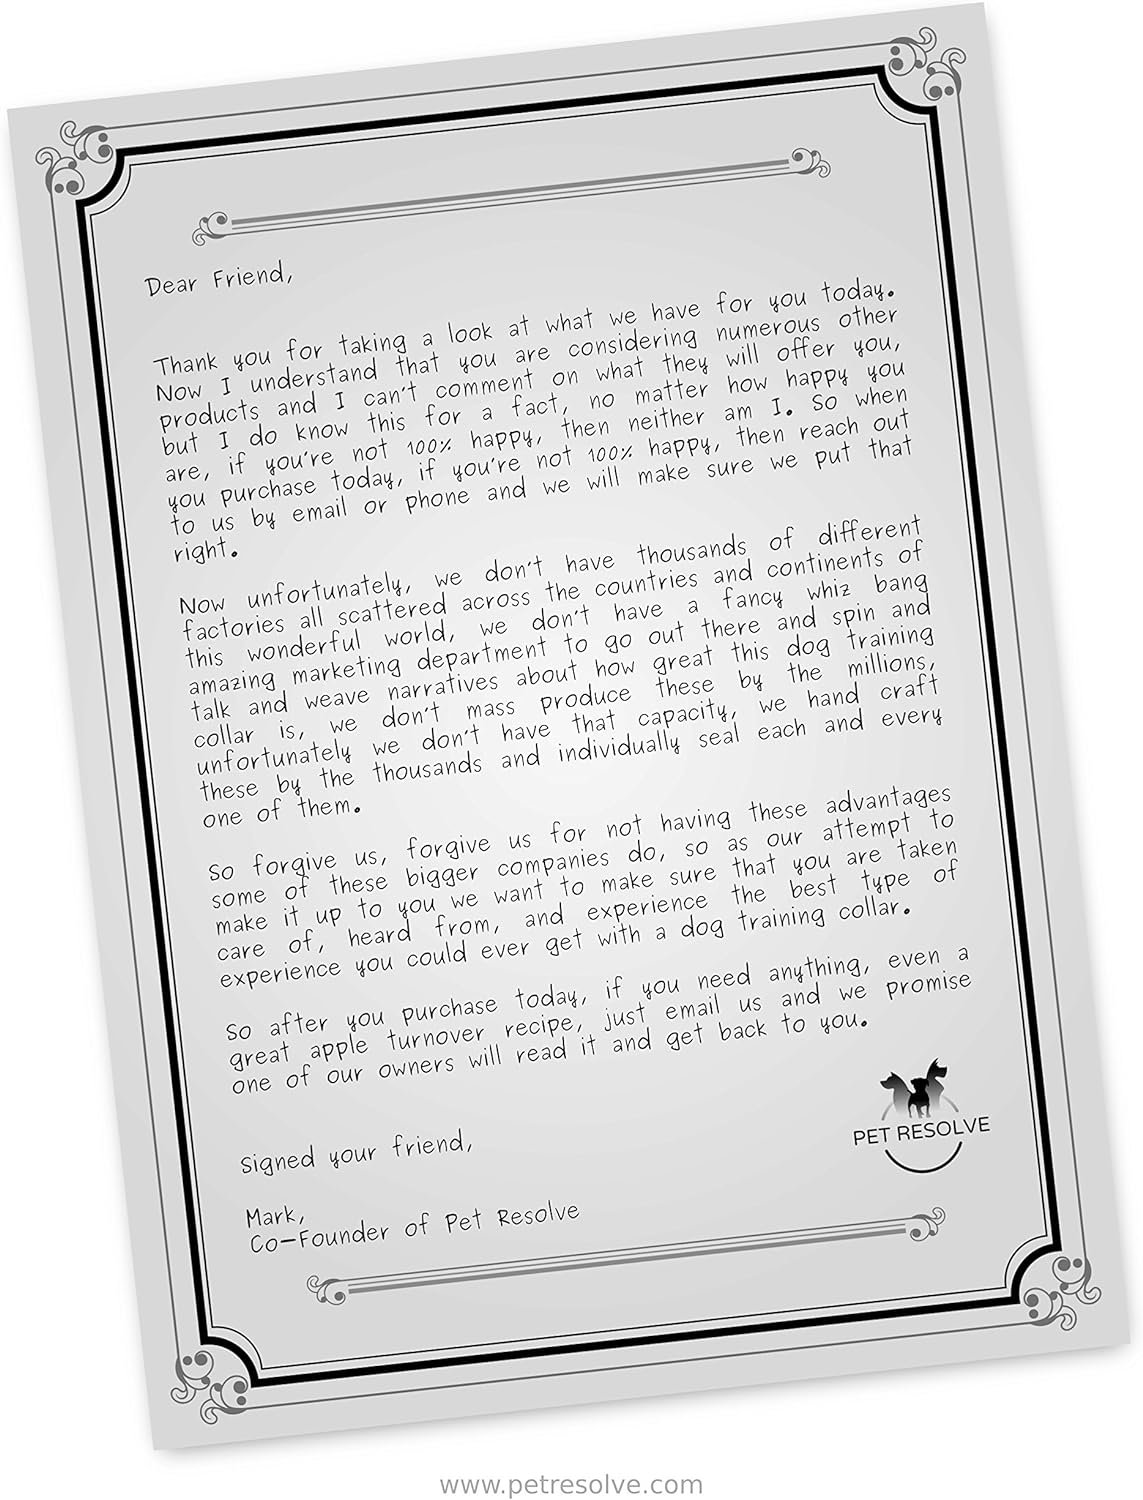 Dear Friend,
Thank you for taking a look at what we have for you today.
Now I understand that you are considering numerous other
products and I can't comment on what they will offer you,
but I do know this for a fact, no matter how happy you
are, if you're not 100% happy, then neither am I. So when
you purchase today, if you're not 100% happy, then reach out
to us by email or phone and we will make sure we put that
right.
Now unfortunately, we don't have thousands of different
factories all scattered across the countries and continents of
this wonderful world, we don't have a fancy whiz bang
amazing marketing department to go out there and spin and
talk and weave narratives about how great this dog training
collar is, we don't mass produce these by the millions,
unfortunately we don't have that capacity, we hand craft
these by the thousands and individually seal each and every
one of them.
So forgive us, forgive us for not having these advantages
some of these bigger companies do, so as our attempt to
make it up to you we want to make sure that you are taken
care of, heard from, and experience the best type of
experience you could ever get with a dog training collar.
So after you purchase today, if you need anything, even a
great apple turnover recipe, just email us and we promise
one of our owners will read it and get back to you.
PET RESOLVE
Signed your friend,
Mark,
Co-Founder of Pet Resolve
www.petresolve.com